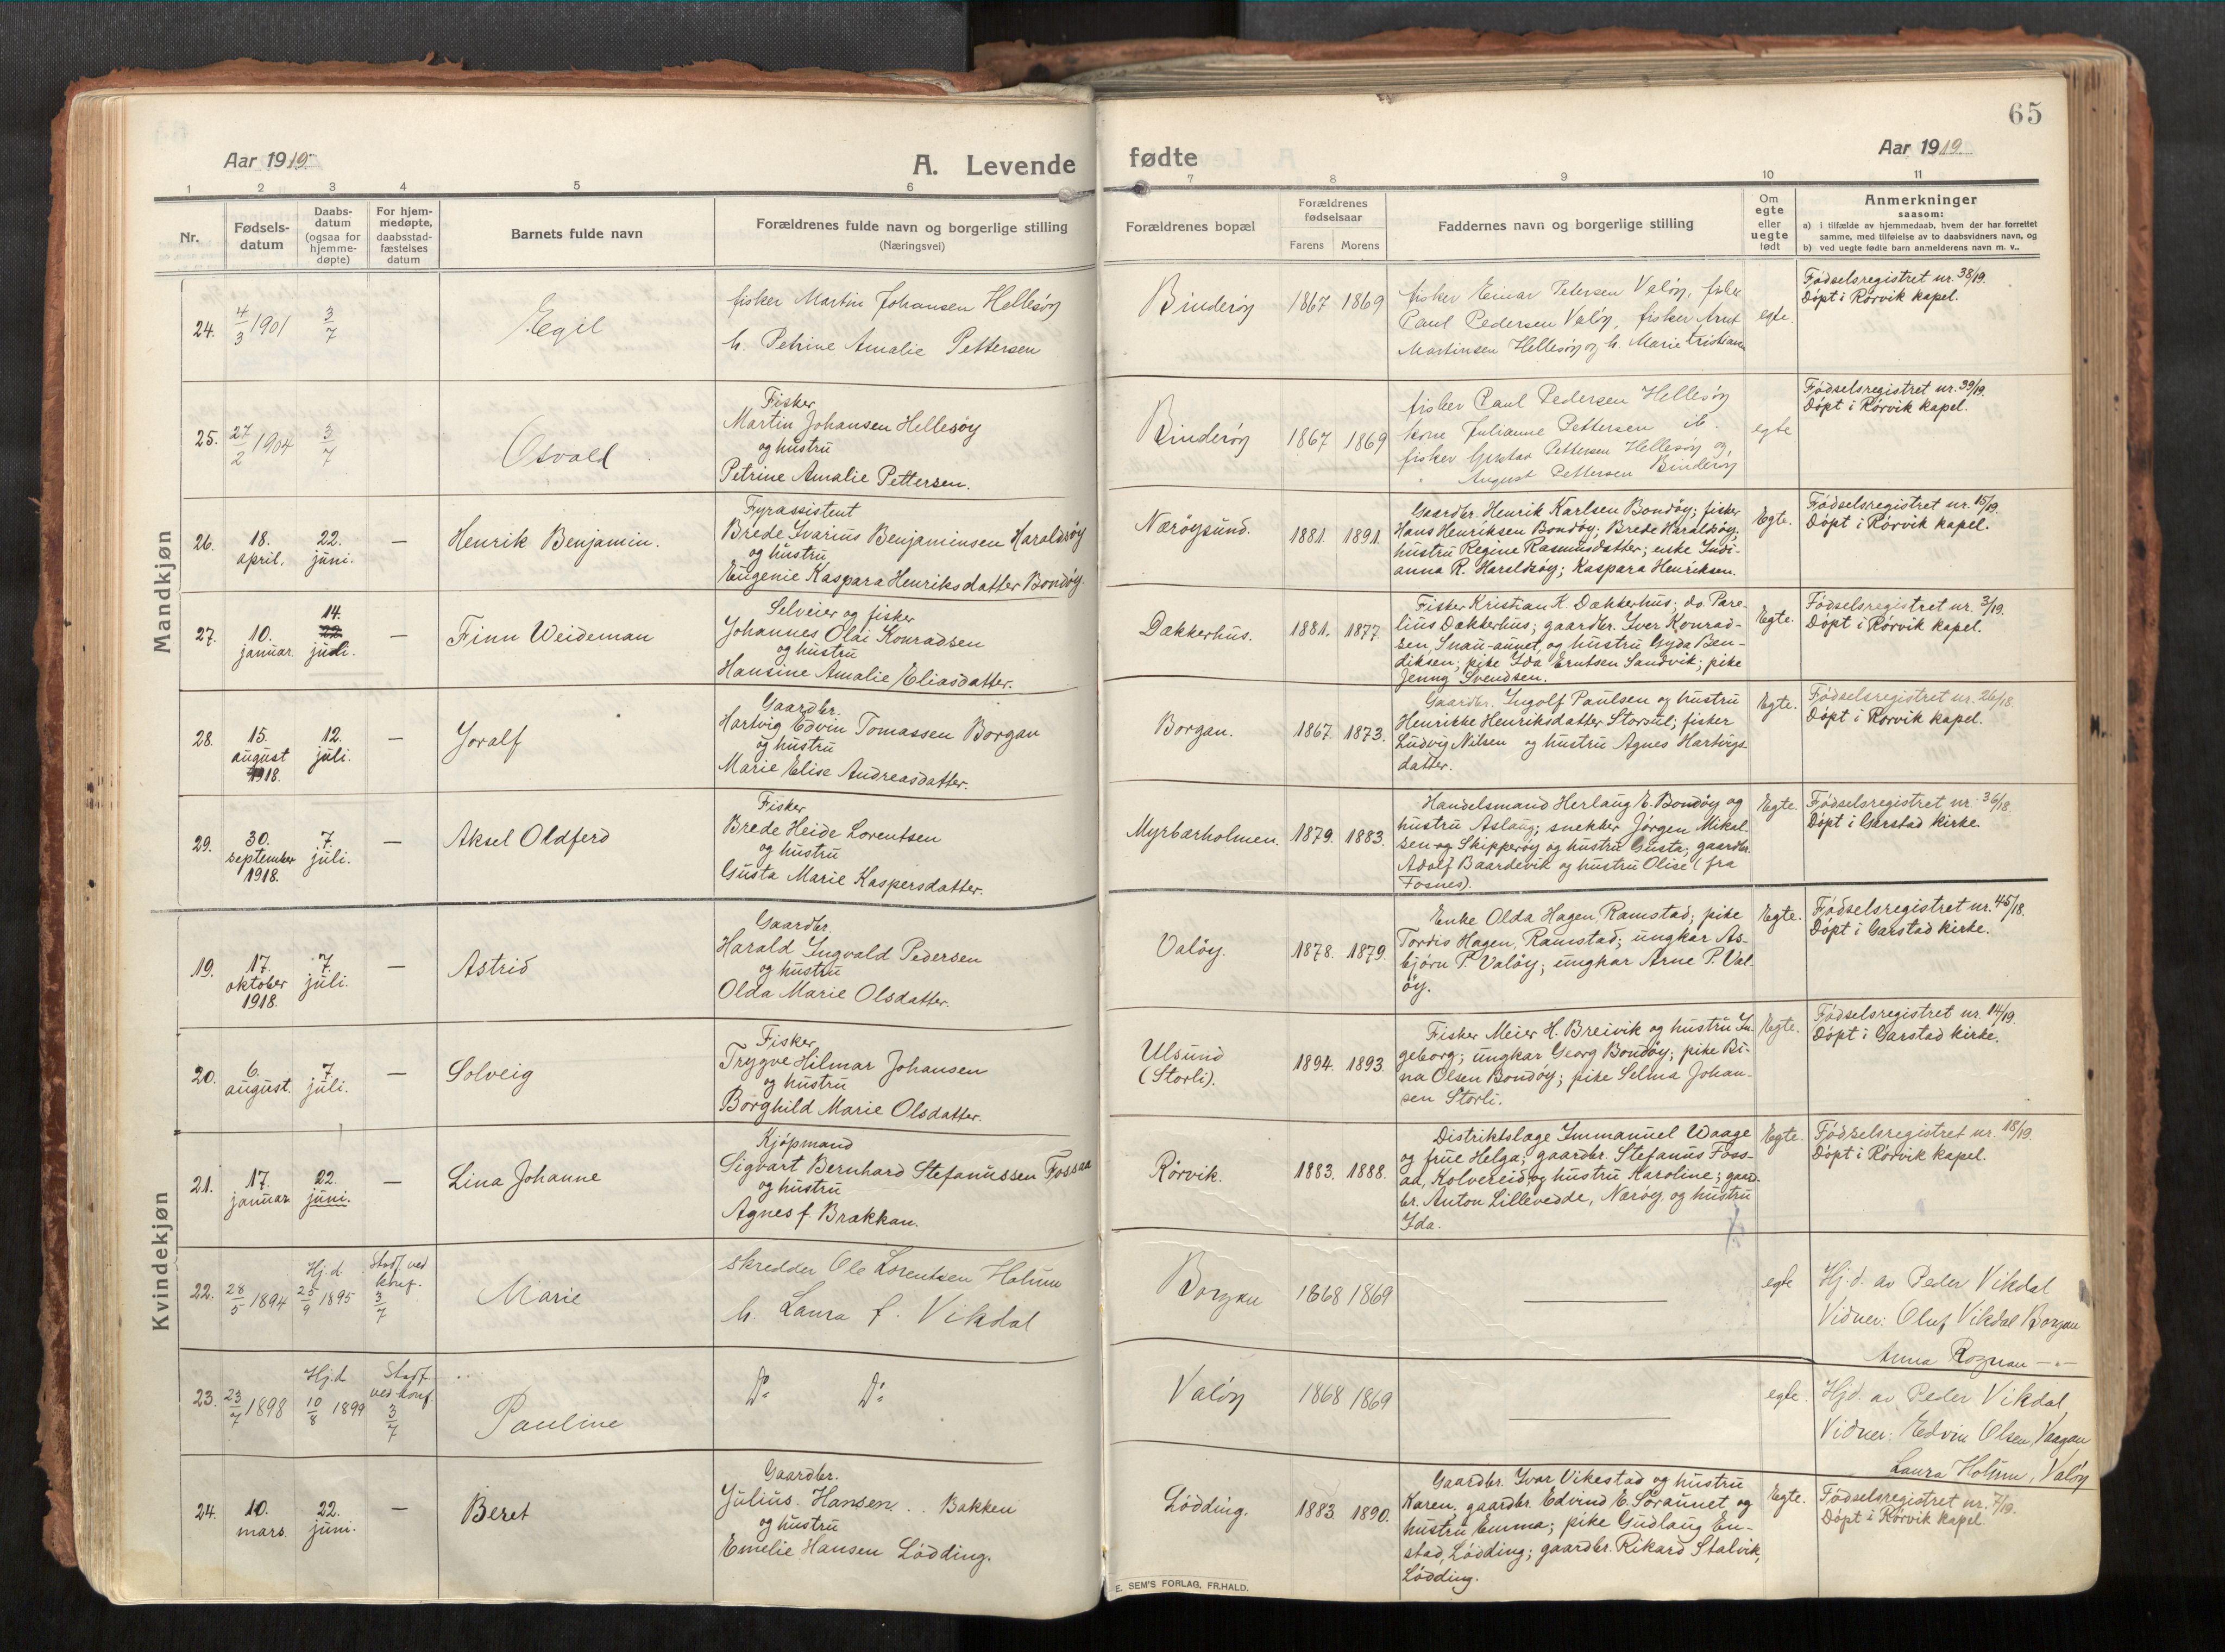 65
Aar 1919.
A. Levende
fødte
Aar 1919.
1 2 3 4 5 6 7 8 9 10 11
Nr.
Fødsels-
datum
Daabs-
datum
(ogsaa for
hjemme-
døpte)
For hjem-
medøpte,
daabsstad-
fæstelses
datum
Barnets fulde navn
Forældrenes fulde navn og borgerlige stilling
(Næringsvei)
Forældrenes bopæl
Forældrenes
fødselsaar
Farens Morens
Faddernes navn og borgerlige stilling
Om
egte
eller
uegte
født
Anmerkninger
saasom:
a) i tilfælde av hjemmedaab, hvem der har forrettet
samme, med tilføielse av to daabsvidners navn, og
b) ved uegte fødte barn anmelderens navn m. v..
Mandkjøn
24. 4/3 1901 3/7 Egil
fisker Martin Johansen Hellesøy
h. Petrine Amalie Pettersen
Binderøy 1867 1869
fisker Einar Petersen Valøy, fisker
Paul Pedersen Valøy, fisker Arnt
Martinsen Hellesøy og h. Marie Kristianne
egte.
Fødselsregistret nr. 38/19.
Døpt i Rørvik kapel.
25. 27/2 1904 3/7 Osvald
Fisker
Martin Johansen Hellesøy
og hustru
Petrine Amalie Pettersen.
Binderøy 1867 1869
fisker Paul Pedersen Hellesøy
kone Julianne Pettersen ib.
fisker Gustav Pettersen Hellesøy og
August Pettersen Binderøy
egte
Fødselsregistret nr. 39/19.
Døpt i Rørvik kapel.
26. 18. april. 22. juni. — Henrik Benjamin.
Fyrassistent
Brede Ivarius Benjaminsen Haraldsøy
og hustru
Eugenie Kaspara Henriksdatter Bondøy.
Nærøysund. 1881. 1891.
Gaardbr. Henrik Karlsen Bondøy; fisker
Hans Henriksen Bondøy; Brede Haraldsøy;
hustru Regine Rasmusdatter; enke Indi-
anna R. Haraldsøy; Kaspara Henriksen.
Egte.
Fødselsregistret nr. 15/19.
Døpt i Rørvik kapel.
27. 10. januar. 14. 22. juli. — Finn Weideman
Selveier og fisker
Johannes Olai Konradsen
og hustru
Hansine Amalie Eliasdatter.
Dækkerhus. 1881. 1877.
Fisker Kristian K. Dækkerhus; do. Pare-
lius Dækkerhus; gaardbr. Iver Konrad-
sen, Snau-aunet, og hustru Gyda Ben-
diksen; pike Ida Erntsen Sandvik; pike
Jenny Svendsen.
Egte.
Fødselsregistret nr. 3/19.
Døpt i Rørvik kapel.
28. 15. august 1918. 12. juli. — Joralf
Gaardbr.
Hartvig Edvin Tomassen Borgan
og hustru
Marie Elise Andreasdatter.
Borgan. 1867. 1873.
Gaardbr. Ingolf Paulsen og hustru
Henrikke Henriksdatter Storsul; fisker
Ludvig Nilsen og hustru Agnes Hartvigs-
datter.
Egte.
Fødselsregistret nr. 26/18.
Døpt i Rørvik kapel.
29. 30. september 1918. 7. juli. — Aksel Oldferd
Fisker
Brede Heide Lorentsen
og hustru
Gusta Marie Kaspersdatter.
Myrbærholmen. 1879. 1883.
Handelsmand Herlaug E. Bondøy og
hustru Aslaug; snekker Jørgen Mikal-
sen og Skipperøy og hustru Gusta; gaardbr.
Adolf Baardevik og hustru Olise (fra
Fosnes).
Egte.
Fødselsregistret nr. 36/18.
Døpt i Garstad kirke.
Kvindekjøn
19. 17. oktober 1918. 7. juli. — Astrid
Gaardbr.
Harald Ingvald Pedersen
og hustru
Olda Marie Olsdatter.
Valøy. 1878. 1879.
Enke Olda Hagen, Ramstad; pike
Tordis Hagen, Ramstad; ungkar As-
bjørn P. Valøy; ungkar Arne P. Val-
øy.
Egte.
Fødselsregistret nr. 45/18.
Døpt i Garstad kirke.
20. 6. august. 7. juli. — Solveig
Fisker
Trygve Hilmar Johansen
og hustru
Borghild Marie Olsdatter.
Ulsund
(Storli). 1894. 1893.
Fisker Meier H. Breivik og hustru In-
geborg; ungkar Georg Bondøy; pike Bi-
na Olsen Bondøy; pike Selma Johan-
sen Storli.
Egte.
Fødselsregistret nr. 14/19.
Døpt i Garstad kirke.
21. 17. januar. 22. juni. — Lina Johanne
Kjøpmand
Sigvart Bernhard Stefanussen Fossaa
og hustru
Agnes f. Brækkan.
Rørvik. 1883. 1888.
Distriktslæge Immanuel Waage
og frue Helga; gaardbr. Stefanus Foss-
aa, Kolvereid, og hustru Karoline; gaard-
br. Anton Lillevedde, Nærøy, og hustru
Ida.
Egte.
Fødselsregistret nr. 18/19.
Døpt i Rørvik kapel.
22. 28/5 1894 Hj.d. 25/9 1895 Stadf. ved konf. 3/7 Marie
skredder Ole Lorentsen Holum
h. Laura f. Vikdal
Borgan 1868 1869 — egte
Hj. d. av Peder Vikdal
Vidner: Oluf Vikdal Borgan
Anna Rognan —"—
23. 23/7 1898 Hj.d. 10/8 1899 Stadf. ved konf. 3/7 Pauline
Do Do
Valøy 1868 1869 — egte.
Hjd. av Peder Vikdal
Vidner: Edvin Olsen, Vaagan
Laura Holum, Valøy
24. 10. mars. 22. juni. — Beret
Gaardbr.
Julius Hansen Bakken
og hustru
Emelie Hansen Lødding.
Lødding. 1883. 1890.
Gaardbr. Ivar Vikestad og hustru
Karen, gaardbr. Edvind E. Søraunet og
hustru Emma; pike Gudlaug En-
stad, Lødding; gaardbr. Rikard Stalvik,
Lødding.
Egte.
Fødselsregistret nr. 7/19.
Døpt i Rørvik kapel.
E. SEM'S FORLAG, FR.HALD.